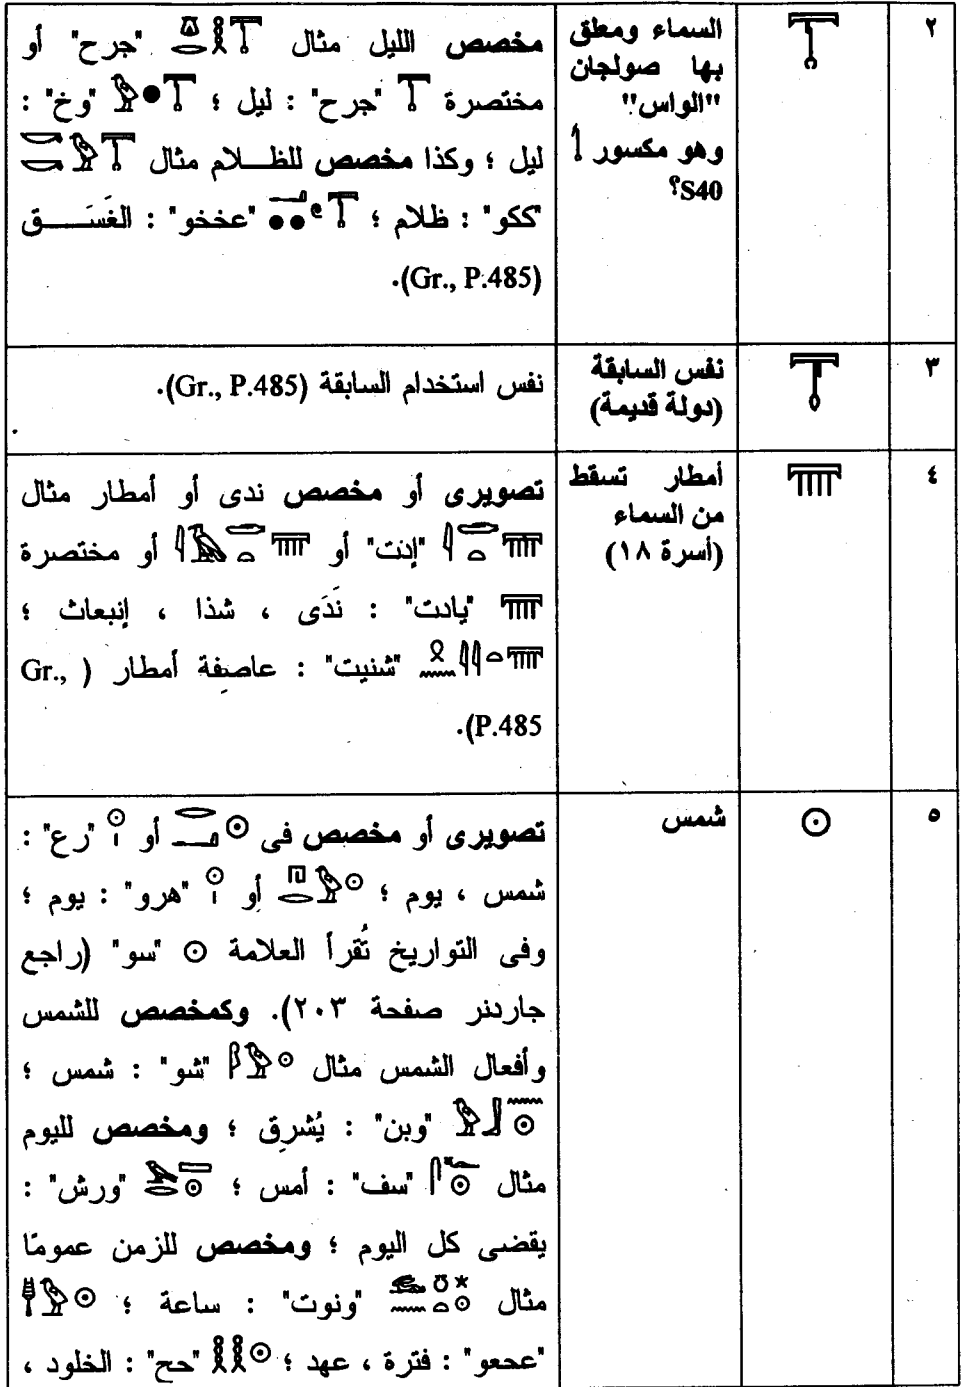 ٢
𓇰
السماء ومعلق
بها صولجان
"الواس"
وهو مكسور 𓌀
S40؟
مخصص الليل مثال 𓎼𓂋𓎛𓇰 "جرح" أو
مختصرة 𓇰 "جرح" : ليل ؛ 𓅱𓐍𓇰 "وخ" :
ليل ؛ وكذا مخصص للظلام مثال 𓎡𓎡𓅱𓇰
"ككو" : ظلام ؛ 𓂝𓐍𓐍𓏲𓇰 "عخخو" : الغَسَق
(Gr., P.485).
٣
𓇱
نفس السابقة
(دولة قديمة)
نفس استخدام السابقة (Gr., P.485).
٤
𓇲
أمطار تسقط
من السماء
(أسرة ١٨)
تصويرى أو مخصص ندى أو أمطار مثال
𓇋𓂧𓏏𓇲 "إدت" أو 𓇋𓄿𓂧𓏏𓇲 أو مختصرة
𓇲 "يادت" : نَدَى ، شذا ، إنبعاث ؛
𓍲𓈖𓇋𓇋𓏏𓇲 "شنيت" : عاصفة أمطار (Gr.,
P.485).
٥
𓇳
شمس
تصويرى أو مخصص فى 𓂋𓂝𓇳 أو 𓇳𓏤 "رع" :
شمس ، يوم ؛ 𓉔𓂋𓅱𓇳 أو 𓇳𓏤 "هرو" : يوم ؛
وفى التواريخ تُقرأ العلامة 𓇳 "سو" (راجع
جاردنر صفحة ٢٠٣). وكمخصص للشمس
وأفعال الشمس مثال 𓆄𓅱𓇳 "شو" : شمس ؛
𓅱𓃀𓈖𓇳 "وبن" : يُشرِق ؛ ومخصص لليوم
مثال 𓋴𓆑𓇳 "سف" : أمس ؛ 𓅨𓂋𓈙𓇳 "ورش" :
يقضى كل اليوم ؛ ومخصص للزمن عمومًا
مثال 𓃹𓈖𓏌𓏏𓇼𓇳 "ونوت" : ساعة ؛ 𓊢𓅱𓇳
"عحعو" : فترة ، عهد ؛ 𓎛𓎛𓇳 "حح" : الخلود ،